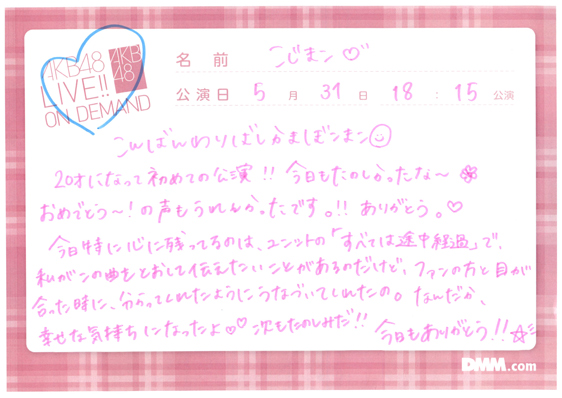 AKB48
LIVE!!
ON DEMAND
AKB
48
名前 こじまこ♡
公演日 5月31日 18:15公演
こんばんわりばしかましぼこまこ☺
20才になって初めての公演!! 今日もたのしかったな〜
おめでとう〜!の声もうれしかったです。!! ありがとう。♡
今日特に心に残ってるのは、ユニットの「すべては途中経過」で、
私がこの曲をとおして伝えたいことがあるのだけど、ファンの方と目が
合った時に、分かってくれたようにうなづいてくれたの。なんだか、
幸せな気持ちになったよ♡♡ 次もたのしみだ!! 今日もありがとう!!☆彡
DMM.com